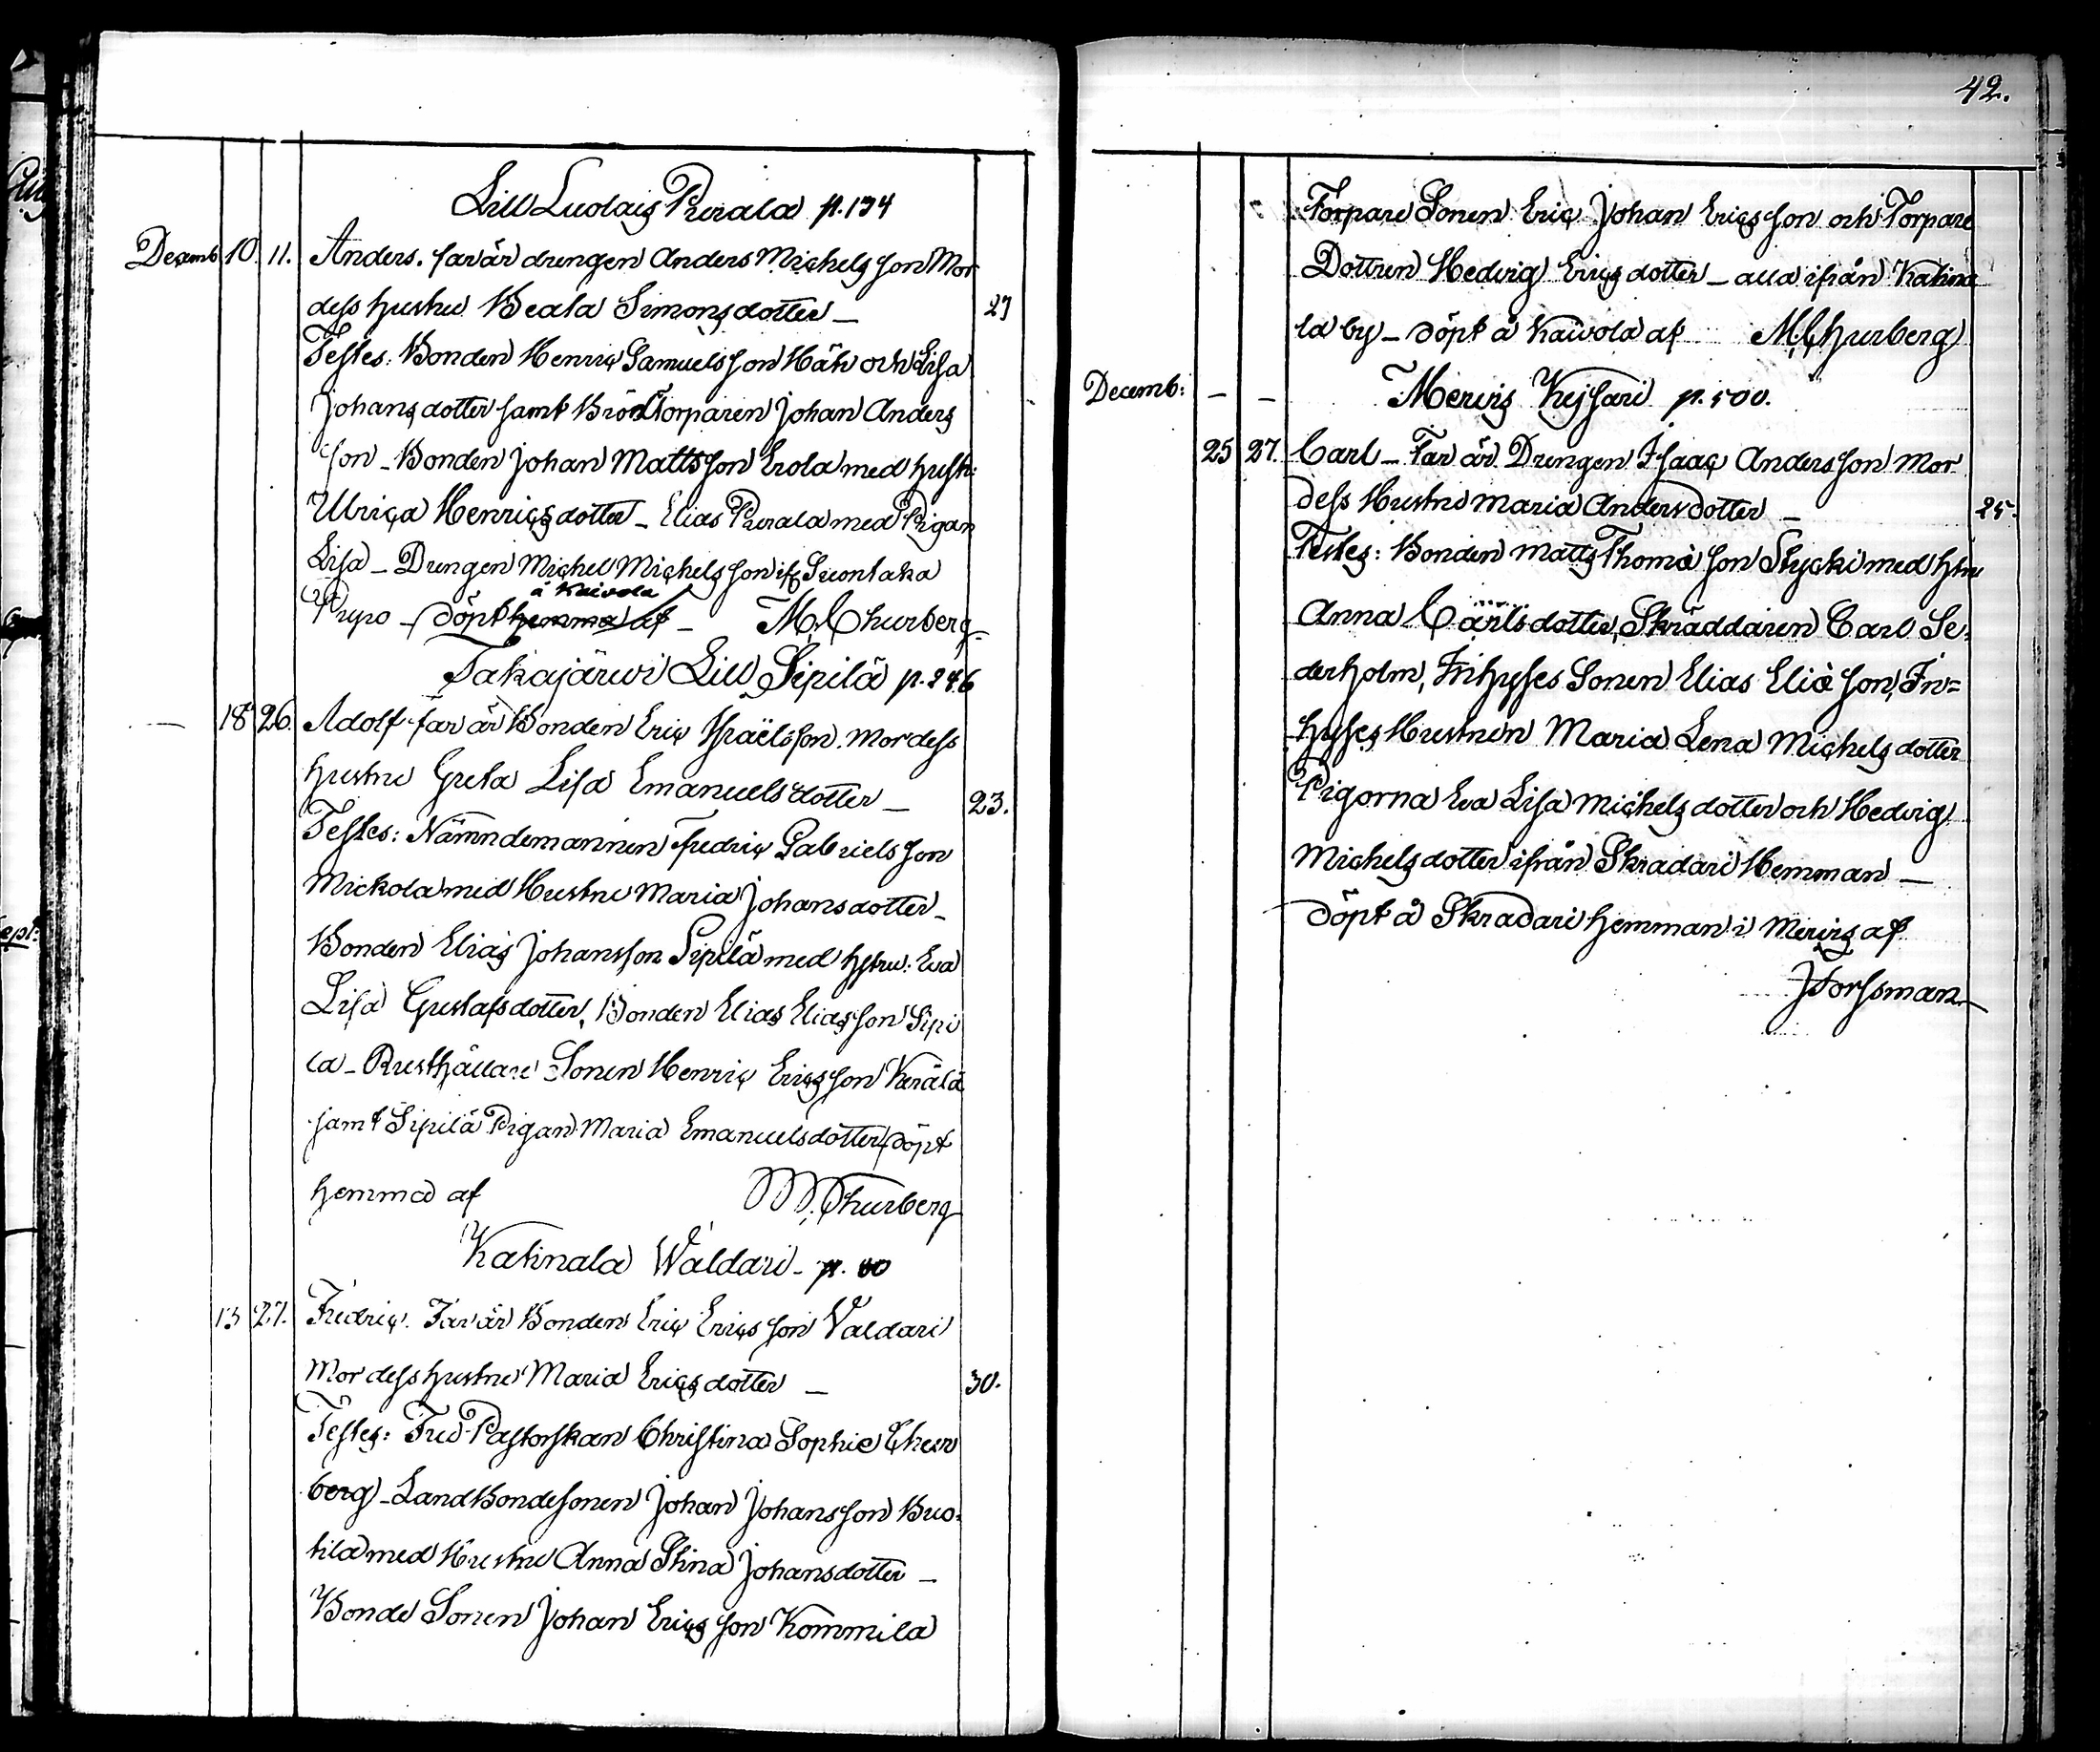 Lill Luolais Pierala p. 134
Decemb 10. 11. Anders. far är drengen Anders Michels son Mor
dess hustru Beata Simons dotter — 27
Testes: Bonden Henric Samuels son Häk och Lisa
Johans dotter samt Torparen Johan Anders
son – Bonden Johan Matts son Erola med hustr:
Ulrica Henrics dotter – Elias Pierala med Pigan
Lisa – Drengen Michel Michels son if Suontaka
å Kaivola
Prypo – döpt hemma af – M. Churberg
Takajärvi Lill Sipilä p. 246
— 18 26. Adolf far är Bonden Eric Israëls son. Mor dess
hustru Greta Lisa Emanuels dotter — 23.
Testes: Nämndemannen Fredric Gabriels son
Mickola med Hustru Maria Johans dotter –
Bonden Elias Johansson Sipilä med hstru: Eva
Lisa Gustafs dotter, Bonden Elias Elias son Sipi
la – Rusthållare Sonen Henric Erics son Kerälä
samt Sipilä Pigan Maria Emanuels dotter, döpt
hemma af M. Churberg
Katinala Waldari – p. 80
13 27. Fredric. Far är Bonden Eric Erics son Valdari
Mor dess hustru Maria Erics dotter — 30.
Testes: Fru Pastorskan Christina Sophie Chur
berg – Landbondesonen Johan Johans son Buo-
tila med Hustru Anna Stina Johans dotter —
Bonde Sonen Johan Erics son Kommila
42.
Torpare Sonen Eric Johan Erics son och Torpare
Dottren Hedvig Erics dotter – alla ifrån Katina
la by – döpt å Kaivola af M. Churberg
Decemb: – – Mervis Kejsari p. 500.
25 27. Carl – Far är Drengen Isaac Anders son Mor
dess Hustru Maria Anders dotter — 25.
Testes: Bonden Matts Thomæ son Stycki med hstru
Anna Carls dotter, Skräddaren Carl Se-
derholm, Inhyses Sonen Elias Eliæ son, In=
hyses Hustrun Maria Lena Michels dotter
Pigorna Eva Lisa Michels dotter och Hedvig
Michels dotter ifrån Skradari Hemman —
döpt å Skradari hemman i Mervis af
J Forssman